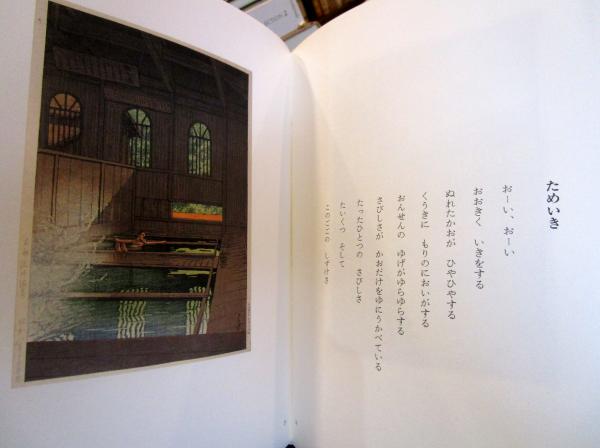 ECTION 2
ためいき
おーい、おーい
おおきく いきをする
ぬれたかおが ひやひやする
くうきに もりのにおいがする
おんせんの ゆげがゆらゆらする
さびしさが かおだけをゆにうかべている
たったひとつの さびしさ
たいくつ そして
このごごの しずけさ